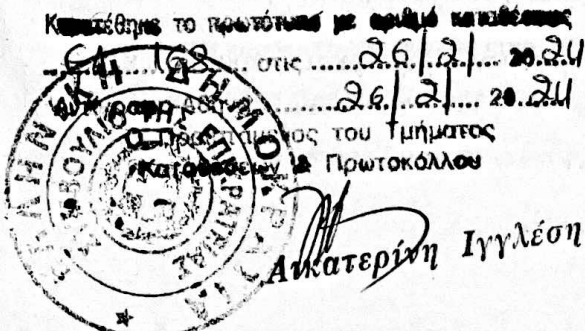 Κατετέθηκε το πρωτότυπο με αριθμό καταθέσεως
στις 26/2/ 2024
26/2/ 2024
Ο Προϊστάμενος του Τμήματος
Καταθέσεων & Πρωτοκόλλου
Αικατερίνη Ιγγλέση
ΕΛΛΗΝΙΚΗ ΔΗΜΟΚΡΑΤΙΑ
ΣΥΜΒΟΥΛΙΟ ΤΗΣ ΕΠΙΚΡΑΤΕΙΑΣ